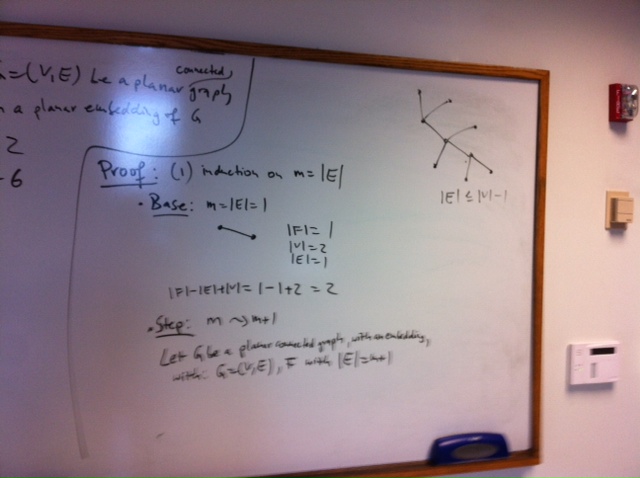 G=(V,E) be a planar connected graph
n a planar embedding of G
2
-6
Proof: (1) induction on m=|E|
• Base: m=|E|=1
|F|=1
|V|=2
|E|=1
|F|-|E|+|V|=1-1+2=2
• Step: m ⤳ m+1
Let G be a planar connected graph, with an embedding,
with: G=(V,E), F with |E|=m+1
|E| ≤ |V|-1